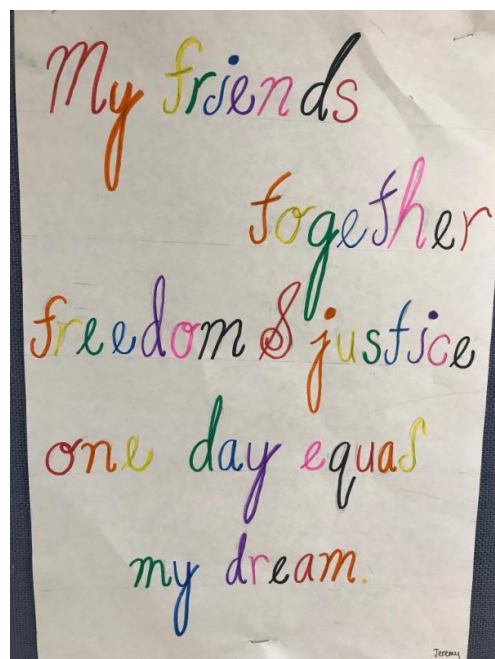 My friends
together
freedom & justice
one day equal
my dream.
Jeremy